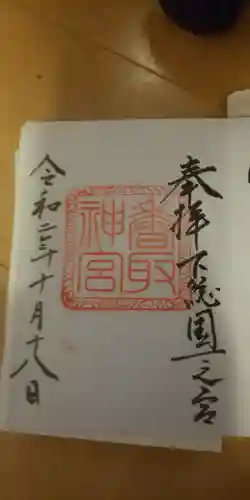 奉拝下総国一之宮
香取
神宮
令和二年十月十八日